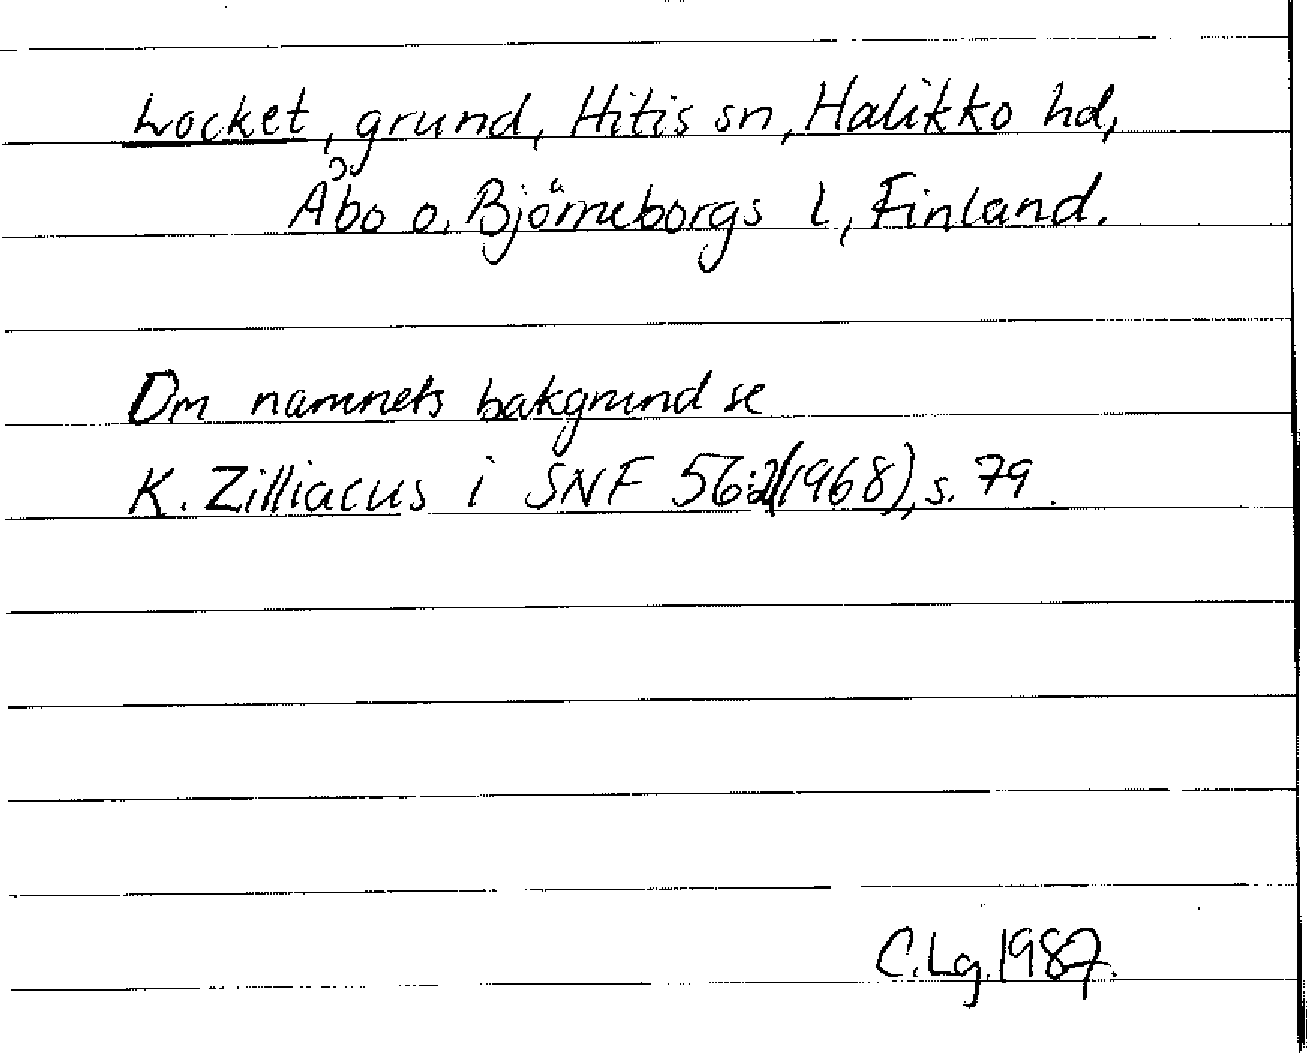 Locket, grund, Hitis sn, Halikko hd,
Åbo o. Björneborgs l, Finland.
Om namnets bakgrund se
K. Zilliacus i SNF 56:2(1968), s. 79.
C.Lg. 1987.